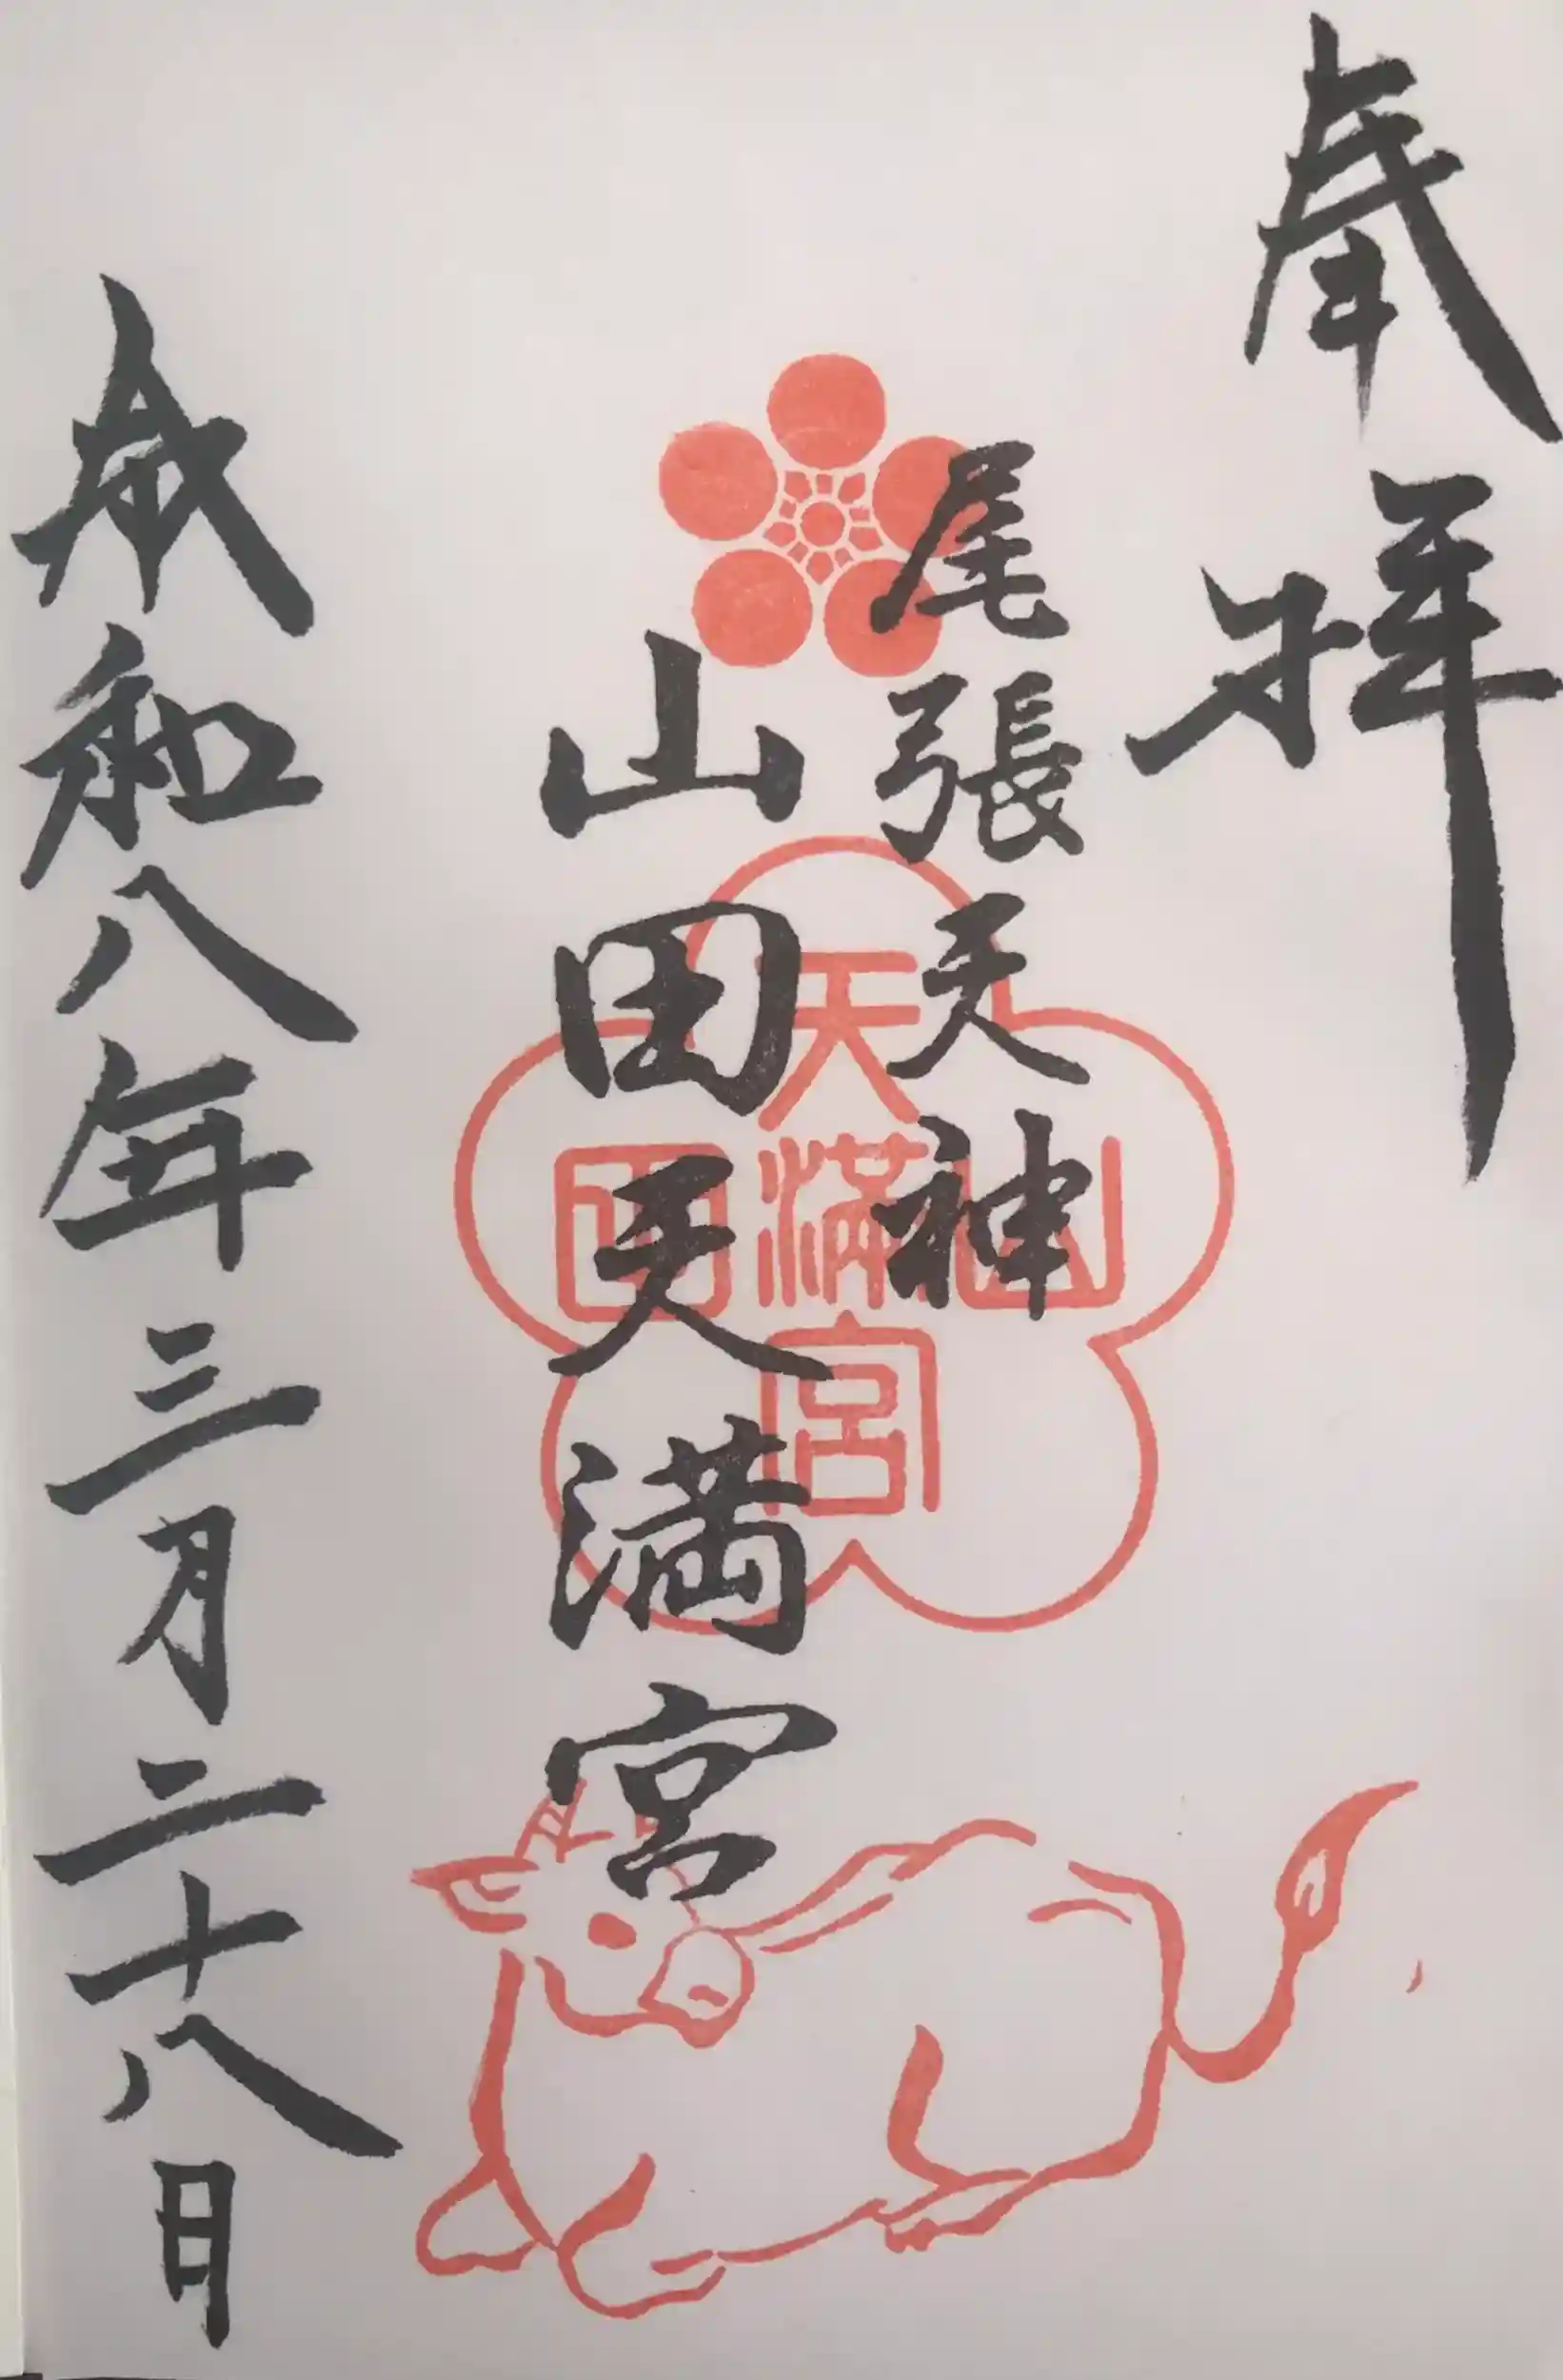 奉拝
尾張天神
山田天満宮
令和八年三月二十八日
天
山満田
宮